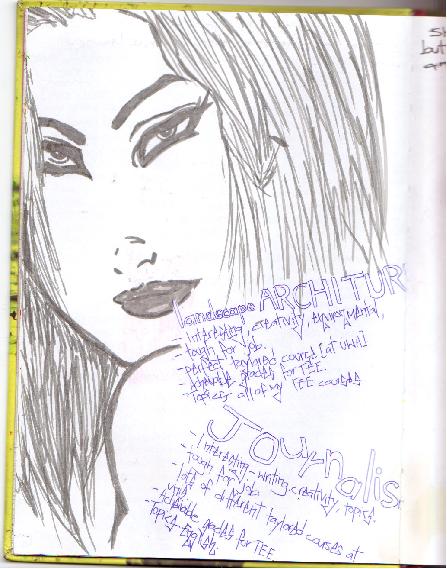 Landscape ARCHITUR
- Interesting, creativity, enviromental,
- tough for job.
- perfect taylored course [at UWA]
- Achievable grades for TEE.
- Topics - all of my TEE courses
Journalis
- Interesting - writing, creativity, topics.
- tough for job
- lots of different taylored courses at
uni's.
- Achievable grades for TEE.
- Topics - English.
but